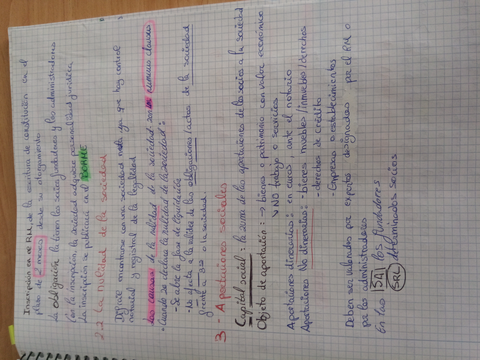 Inscripción en el R.M. de la escritura de constitución en el
plazo de 2 meses desde su otorgamiento
La obligación la tienen los socios fundadores y los administradores
Con la inscripción, la sociedad adquiere personalidad jurídica
La inscripción se publicará en el BORME
2.2 La nulidad de la sociedad
notarial y registral de la legalidad
Las causas de la nulidad de la sociedad son numerus clausus
- Cuando se declara la nulidad de la sociedad:
- Se abre la fase de liquidación
- No afecta a la validez de las obligaciones/actos de la sociedad
3. Aportaciones sociales
Capital social: la suma de las aportaciones de los socios a la sociedad
Objeto de aportación: → bienes o patrimonio con valor económico
↳ NO trabajo o servicios
Aportaciones dinerarias: en euros, ante el notario
Aportaciones No dinerarias: - bienes muebles/inmuebles/derechos
- derechos de crédito
- Empresas o establecimientos
Deben ser valoradas por expertos designados por el R.M. o
por los administradores
En las SA por fundadores
SRL determinados socios